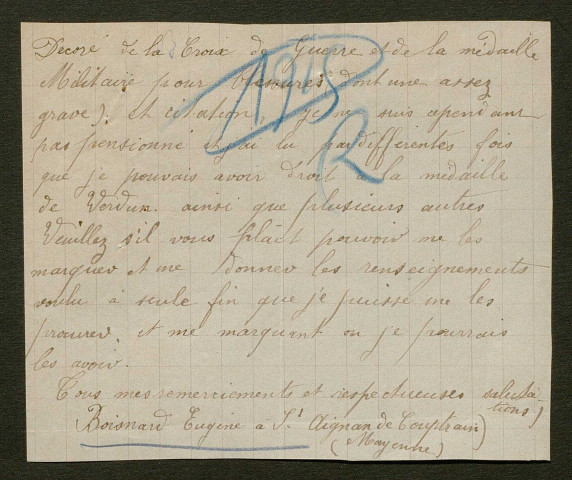 Decoré de la Croix de Guerre et de la médaille
Militaire pour blessures (dont une assez
grave). et citation, je ne suis ependant
pas pensionné et j'ai lu par differentes fois
que je pouvais avoir droit à la medaille
de Verdun. ainsi que plusieurs autres
Veuillez s'il vous plait pouvoir me les
marquer et me donner les renseignements
voulu à seule fin que je puisse me les
procurer. et me marquant ou je pourrais
les avoir.
Tous mes remerciements et respectueuses salutations
Boisnard Eugène à St Aignan de Couptrain
(Mayenne)